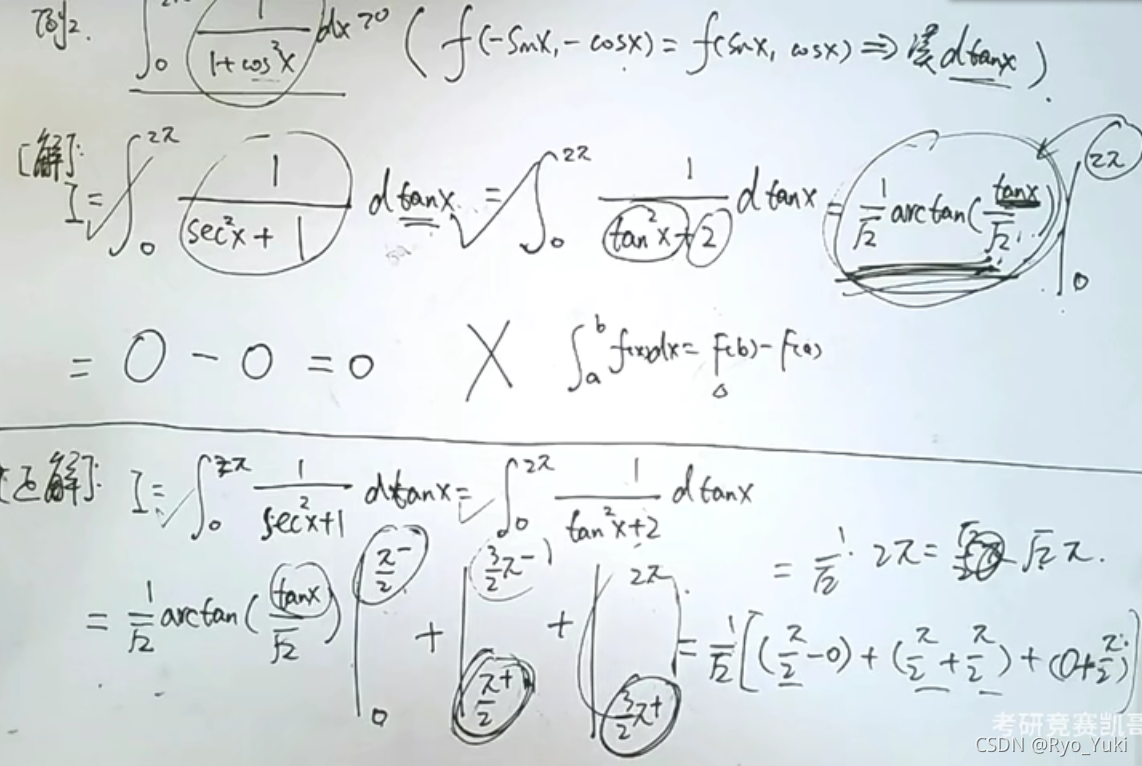 例2. ∫₀^2π 1/(1+cos²x) dx>0 ( f(-sinx, -cosx) = f(sinx, cosx) ⇒ 凑 dtanx ).
[解]: I = ∫₀^2π 1/(sec²x+1) dtanx = ∫₀^2π 1/(tan²x+2) dtanx = 1/√2 arctan(tanx/√2) |₀^2π
= 0 - 0 = 0 X ∫ₐ^b f(x)dx = F(b) - F(a)
[正解]: I = ∫₀^2π 1/(sec²x+1) dtanx = ∫₀^2π 1/(tan²x+2) dtanx
= 1/√2 arctan(tanx/√2) |₀^(π/2⁻) + |_(π/2⁺)^(3/2π⁻) + |_(3/2π⁺)^2π = 1/√2 [(π/2-0) + (π/2+π/2) + (0+π/2)]
= 1/√2 · 2π = √2π.
考研竞赛凯哥
CSDN @Ryo_Yuki